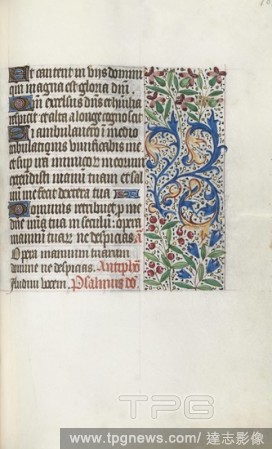 Et cantent in viis domini
qm magna est gloria dni.
Qm excelsus dns et humilia
respicit et alta a longe cognoscit
Si ambulavero in medio
tribulationis vivificabis me
et sup iram inimicor meorum
extendisti manum tuam et sal
vum me fecit dextera tua
Dominus retribuet p me
dne mia tua in seculum opera
manuum tuar ne despicias a
Opera manuum tuarum
domine ne despicias. Antiphō
Audivi vocem. Psalmus dd.
TPG
www.tpgnews.com / 達志影像